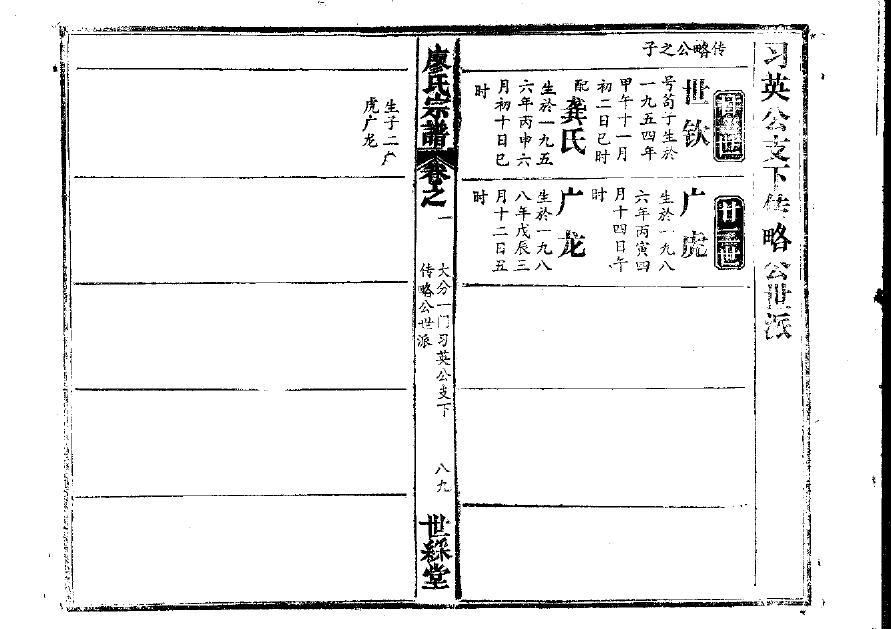 习英公支下传略公世派
传略公之子
世
世钦
号苟子生於
一九五四年
甲午十一月
初二日巳时
配龚氏
生於一九五
六年丙申六
月初十日巳
时
廿一世
广虎
生於一九八
六年丙寅四
月十四日午
时
广龙
生於一九八
八年戊辰三
月十二日丑
时
廖氏宗譜
卷之一
大分一门习英公支下
传略公世派
八九
世綵堂
生子二广
虎广龙